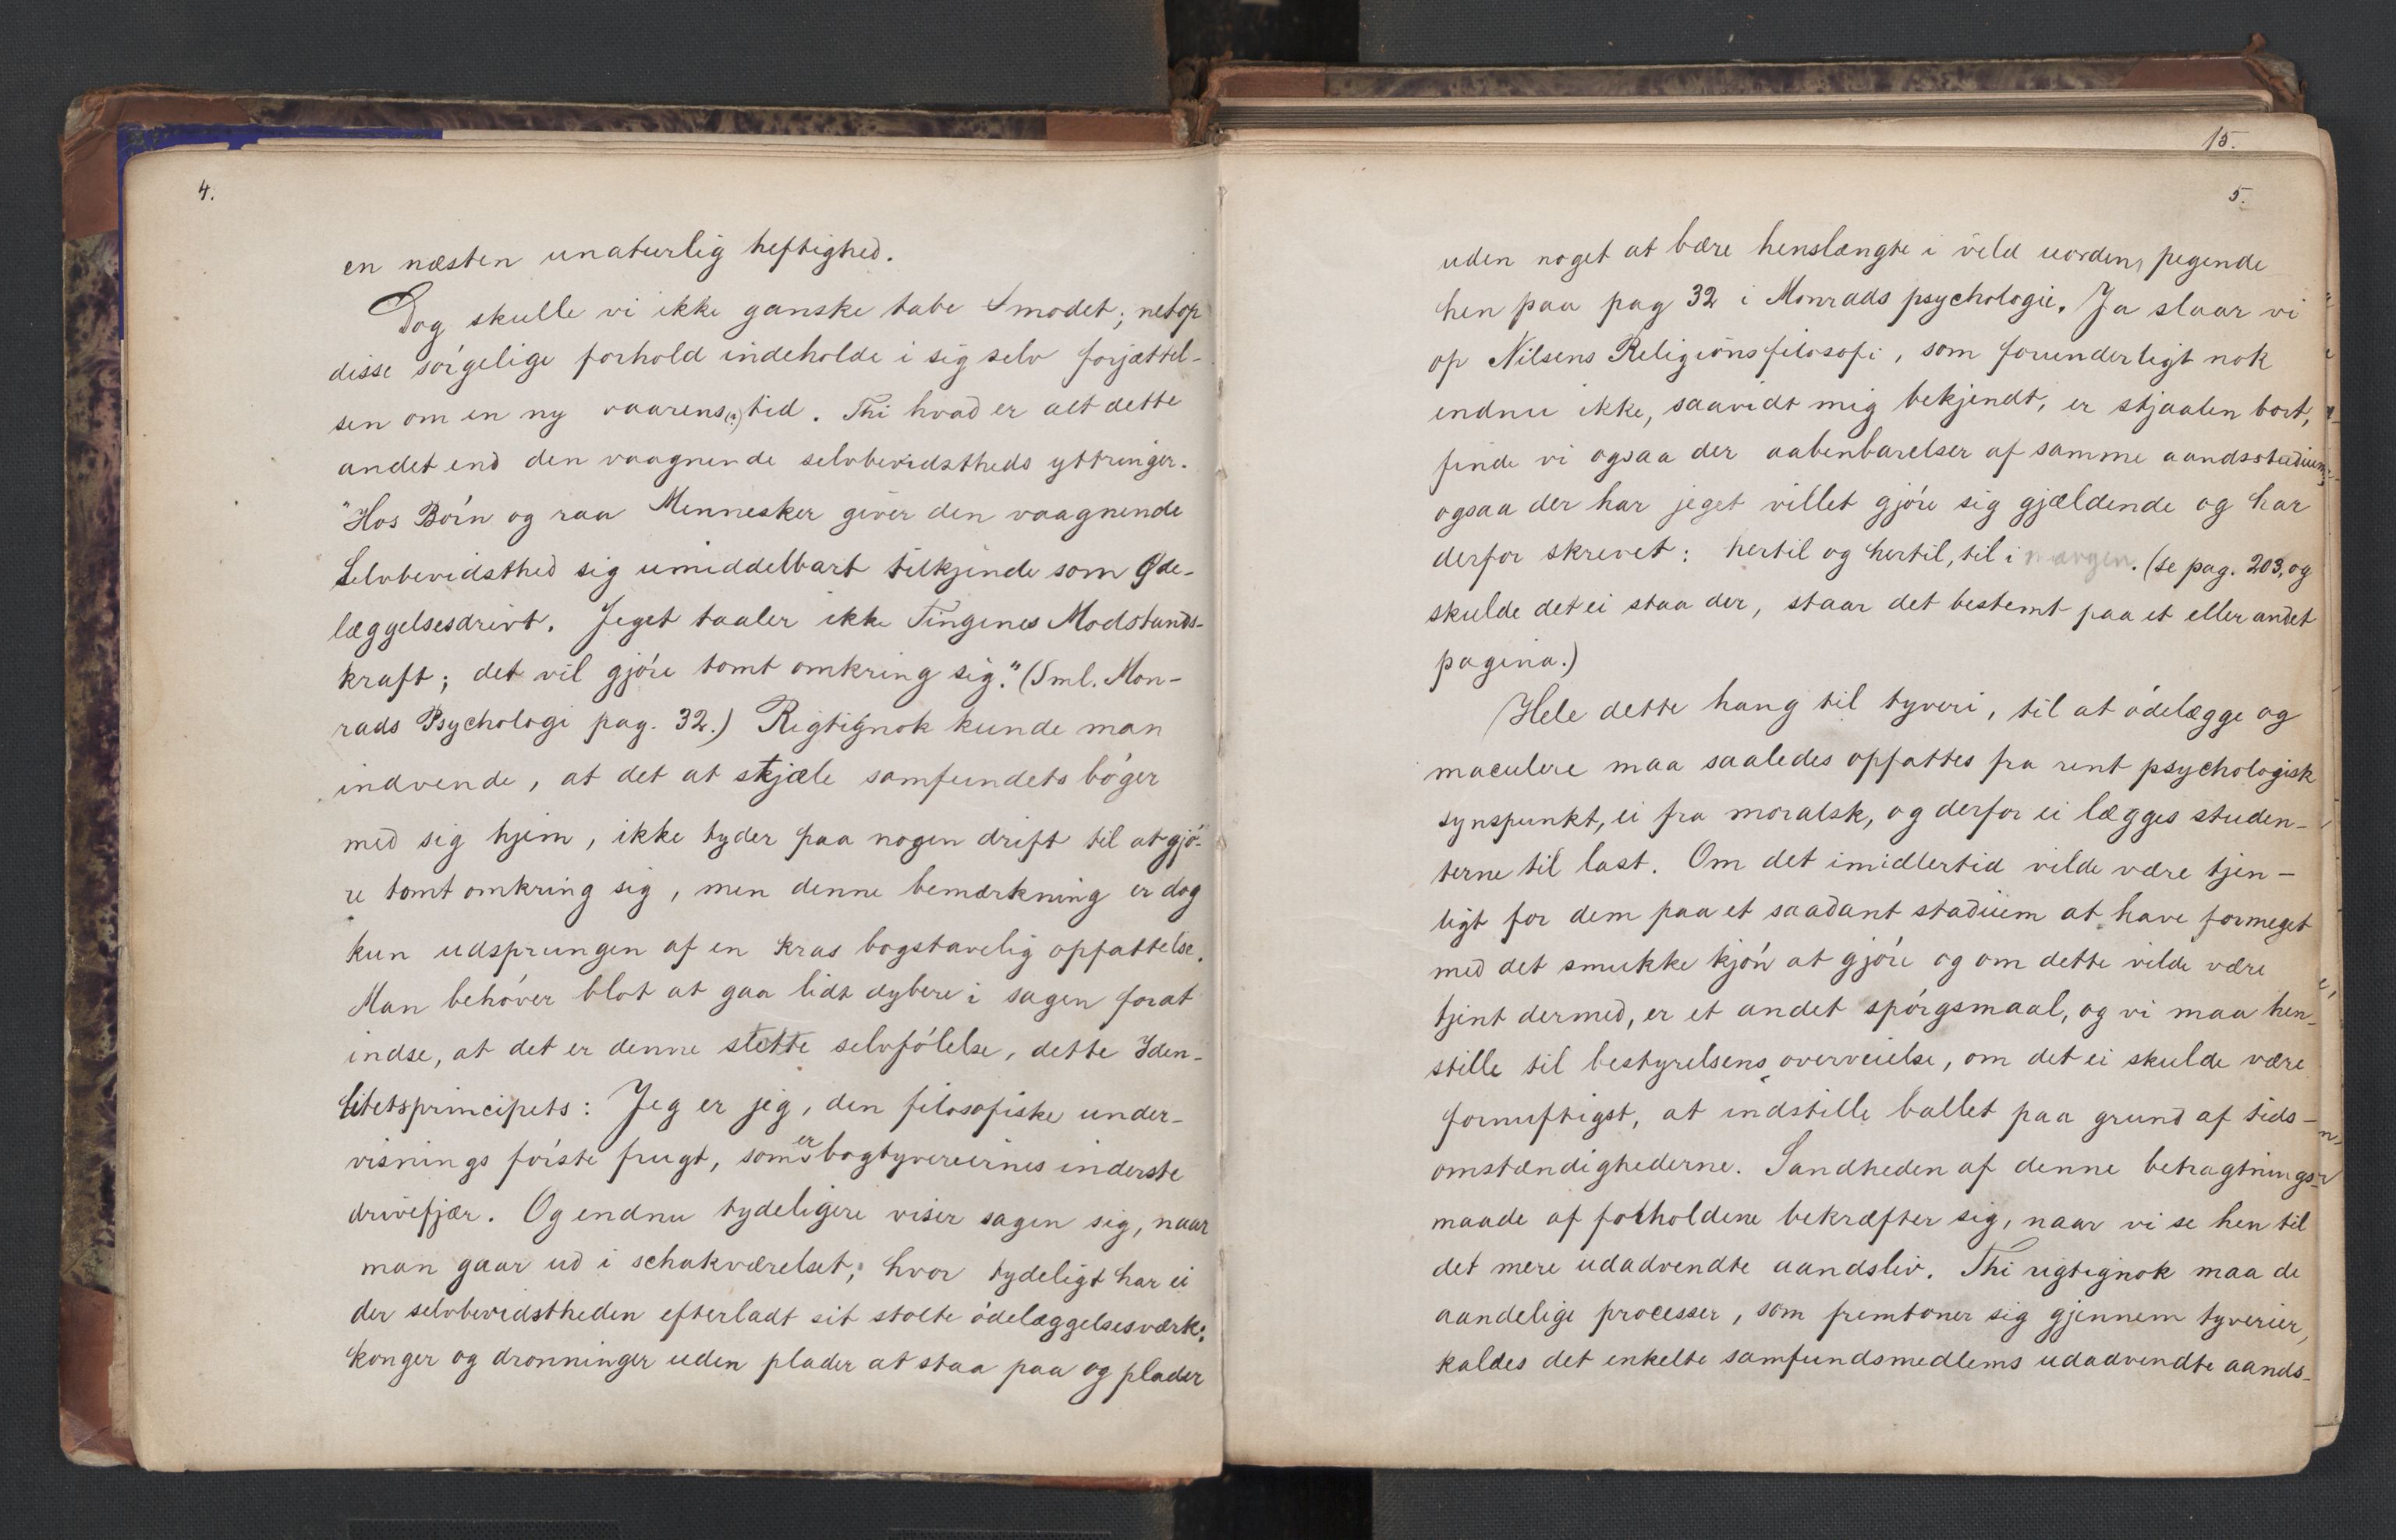 4.
en næsten unaturlig heftighed.
Dog skulle vi ikke ganske tabe modet; netop
disse sørgelige forhold indeholde i sig selv forjættel-
sen om en ny vaarens(?) tid. Thi hvad er alt dette
andet end den vaagnende selvbevidstheds yttringer.
"Hos Børn og raa Mennesker giver den vaagnende
Selvbevidsthed sig umiddelbart tilkjende som Øde-
læggelsesdrivt. Jeget taaler ikke Tingenes Modstands-
kraft; det vil gjøre tomt omkring sig." (Sml. Mon-
rads Psychologi pag. 32.) Rigtignok kunde man
indvende, at det at stjæle samfundets bøger
med sig hjem, ikke tyder paa nogen drift til at gjø-
re tomt omkring sig, men denne bemærkning er dog
kun udsprungen af en kras bogstavelig opfattelse.
Man behøver blot at gaa lidt dybere i sagen forat
indse, at det er denne slette selvfølelse, dette Iden-
titetsprincipets: Jeg er jeg, den filosofiske under-
visnings første frugt, som er bogtyveriernes inderste
drivefjær. Og endnu tydeligere viser sagen sig, naar
man gaar ud i schakværelset; hvor tydeligt har ei
der selvbevidstheden efterladt sit stolte ødelæggelsesværk:
konger og dronninger uden plader at staa paa og plader
15.
5.
uden noget at bære henslængte i vild uorden, pegende
hen paa pag 32 i Monrads psychologie. Ja slaar vi
op Nilsens Religionsfilosofi, som forunderligt nok
endnu ikke, saavidt mig bekjendt, er stjaalen bort,
finde vi ogsaa der aabenbarelser af samme aandsstadium;
ogsaa der har jeget villet gjøre sig gjældende og har
derfor skrevet: hertil og hertil, til i morgen. (se pag. 203, og
skulde det ei staa der, staar det bestemt paa et eller andet
pagina.)
Hele dette hang til tyveri, til at ødelægge og
maculere maa saaledes opfattes fra rent psychologisk
synspunkt, ei fra moralsk, og derfor ei lægges studen-
terne til last. Om det imidlertid vilde være tjen-
ligt for dem paa et saadant stadium at have formeget
med det smukke kjøn at gjøre og om dette vilde være
tjent dermed, er et andet spørgsmaal, og vi maa hen-
stille til bestyrelsens overveielse, om det ei skulde være
fornuftigst, at indstille ballet paa grund af tids-
omstændighederne. Sandheden af denne betragtnings-
maade af forholdene bekræfter sig, naar vi se hen til
det mere udadvendte aandsliv. Thi rigtignok maa de
aandelige processer, som fremtoner sig gjennem tyverier,
kaldes det enkelte samfundsmedlems udadvendte aands-